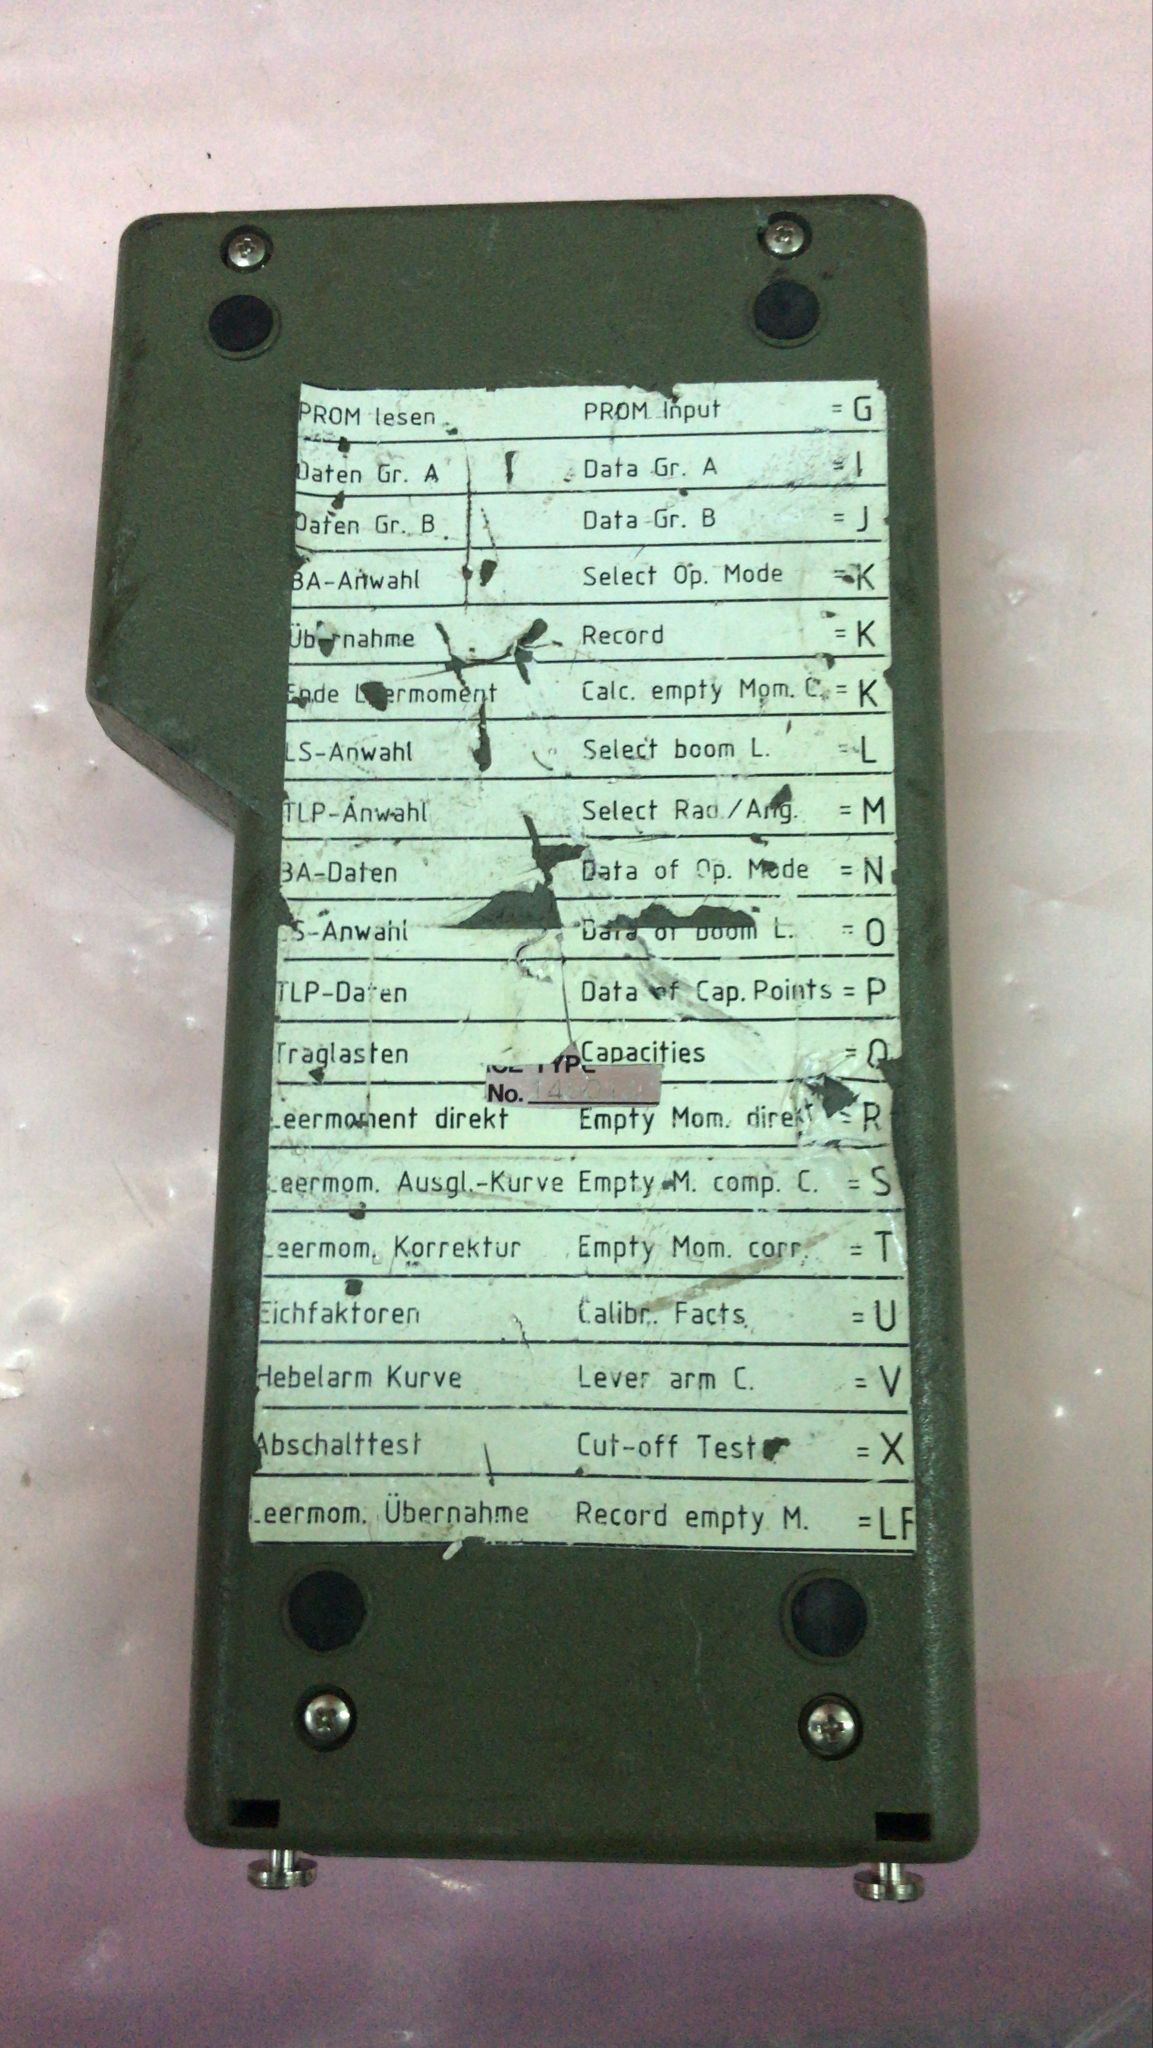 PROM lesen PROM Input = G
Daten Gr. A Data Gr. A = I
Daten Gr. B Data Gr. B = J
BA-Anwahl Select Op. Mode = K
Übernahme Record = K
Ende Leermoment Calc. empty Mom. C. = K
LS-Anwahl Select boom L. = L
TLP-Anwahl Select Rad./Ang. = M
BA-Daten Data of Op. Mode = N
LS-Anwahl Data of boom L. = O
TLP-Daten Data of Cap. Points = P
Traglasten Capacities = Q
TYPE
No.
Leermoment direkt Empty Mom. direkt = R
Leermom. Ausgl.-Kurve Empty M. comp. C. = S
Leermom. Korrektur Empty Mom. corr. = T
Eichfaktoren Calibr. Facts. = U
Hebelarm Kurve Lever arm C. = V
Abschalttest Cut-off Test = X
Leermom. Übernahme Record empty M. = LF